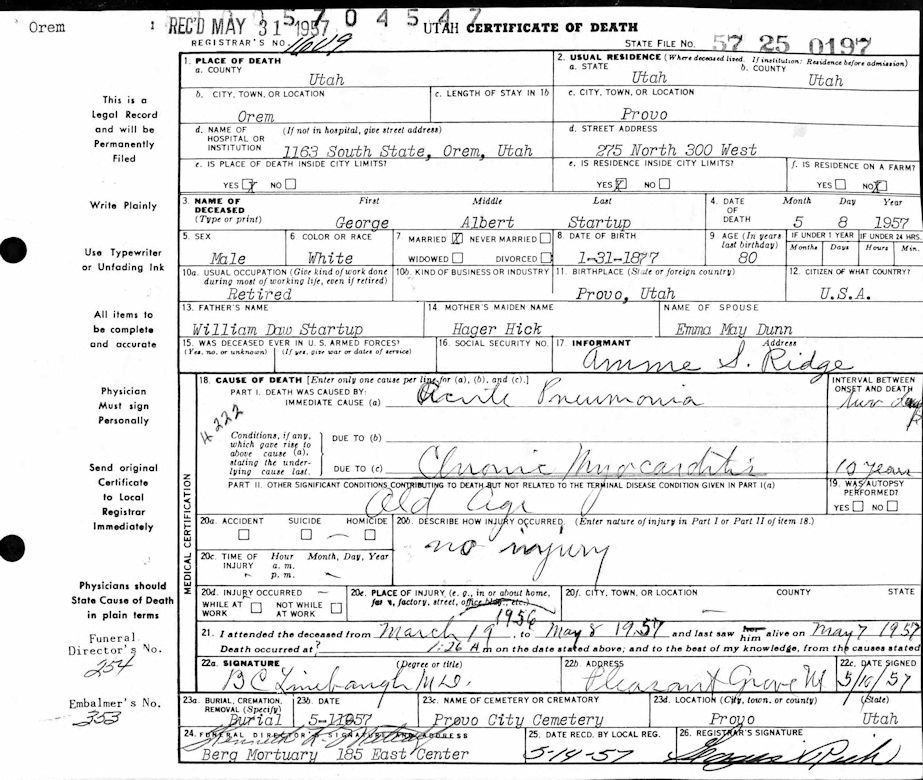 Orem
REC'D MAY 31 1957
5 7 0 4 5 4 7
UTAH CERTIFICATE OF DEATH
REGISTRAR'S NO. 1649
STATE FILE NO. 57 25 0197
This is a
Legal Record
and will be
Permanently
Filed
Write Plainly
Use Typewriter
or Unfading Ink
All items to
be complete
and accurate
Physician
Must sign
Personally
Send original
Certificate
to Local
Registrar
Immediately
Physicians should
State Cause of Death
in plain terms
Funeral
Director's No.
254
Embalmer's No.
353
1. PLACE OF DEATH
a. COUNTY
Utah
2. USUAL RESIDENCE (Where deceased lived. If institution: Residence before admission)
a. STATE
Utah
b. COUNTY
Utah
b. CITY, TOWN, OR LOCATION
Orem
c. LENGTH OF STAY IN 1b
c. CITY, TOWN, OR LOCATION
Provo
d. NAME OF (If not in hospital, give street address)
HOSPITAL OR
INSTITUTION
1163 South State, Orem, Utah
d. STREET ADDRESS
275 North 300 West
e. IS PLACE OF DEATH INSIDE CITY LIMITS?
YES X NO
e. IS RESIDENCE INSIDE CITY LIMITS?
YES X NO
f. IS RESIDENCE ON A FARM?
YES NO X
3. NAME OF
DECEASED
(Type or print)
First Middle Last
George Albert Startup
4. DATE
OF
DEATH
Month Day Year
5 8 1957
5. SEX
Male
6. COLOR OR RACE
White
7. MARRIED X NEVER MARRIED
WIDOWED DIVORCED
8. DATE OF BIRTH
1-31-1877
9. AGE (In years
last birthday)
80
IF UNDER 1 YEAR
Months Days
IF UNDER 24 HRS.
Hours Min.
10a. USUAL OCCUPATION (Give kind of work done
during most of working life, even if retired)
Retired
10b. KIND OF BUSINESS OR INDUSTRY
11. BIRTHPLACE (State or foreign country)
Provo, Utah
12. CITIZEN OF WHAT COUNTRY?
U.S.A.
13. FATHER'S NAME
William Daw Startup
14. MOTHER'S MAIDEN NAME
Hager Hick
NAME OF SPOUSE
Emma May Dunn
15. WAS DECEASED EVER IN U.S. ARMED FORCES?
(Yes, no, or unknown) (If yes, give war or dates of service)
16. SOCIAL SECURITY NO.
17. INFORMANT Address
S. Ridge
MEDICAL CERTIFICATION
18. CAUSE OF DEATH [Enter only one cause per line for (a), (b), and (c).]
PART I. DEATH WAS CAUSED BY:
IMMEDIATE CAUSE (a) Acute Pneumonia
INTERVAL BETWEEN
ONSET AND DEATH
4222
Conditions, if any,
which gave rise to
above cause (a),
stating the under-
lying cause last.
DUE TO (b)
DUE TO (c) Chronic Myocarditis
10 years
PART II. OTHER SIGNIFICANT CONDITIONS CONTRIBUTING TO DEATH BUT NOT RELATED TO THE TERMINAL DISEASE CONDITION GIVEN IN PART I(a)
Old Age
19. WAS AUTOPSY
PERFORMED?
YES NO
20a. ACCIDENT SUICIDE HOMICIDE
20b. DESCRIBE HOW INJURY OCCURRED. (Enter nature of injury in Part I or Part II of item 18.)
no injury
20c. TIME OF
INJURY
Hour Month, Day, Year
a. m.
p. m.
20d. INJURY OCCURRED
WHILE AT
WORK
NOT WHILE
AT WORK
20e. PLACE OF INJURY (e. g., in or about home,
farm, factory, street, office bldg., etc.)
20f. CITY, TOWN, OR LOCATION COUNTY STATE
1956
21. I attended the deceased from March 19, to May 8 1957 and last saw her him alive on May 7 1957
Death occurred at? 1:26 A m on the date stated above; and to the best of my knowledge, from the causes stated
22a. SIGNATURE (Degree or title)
B C Linebaugh M.D.
22b. ADDRESS
Pleasant Grove
22c. DATE SIGNED
5/10/57
23a. BURIAL, CREMATION,
REMOVAL (Specify)
Burial
23b. DATE
5-11-1957
23c. NAME OF CEMETERY OR CREMATORY
Provo City Cemetery
23d. LOCATION (City, town, or county) (State)
Provo Utah
24. FUNERAL DIRECTOR'S SIGNATURE AND ADDRESS
Berg Mortuary 185 East Center
25. DATE RECD. BY LOCAL REG.
5-14-57
26. REGISTRAR'S SIGNATURE